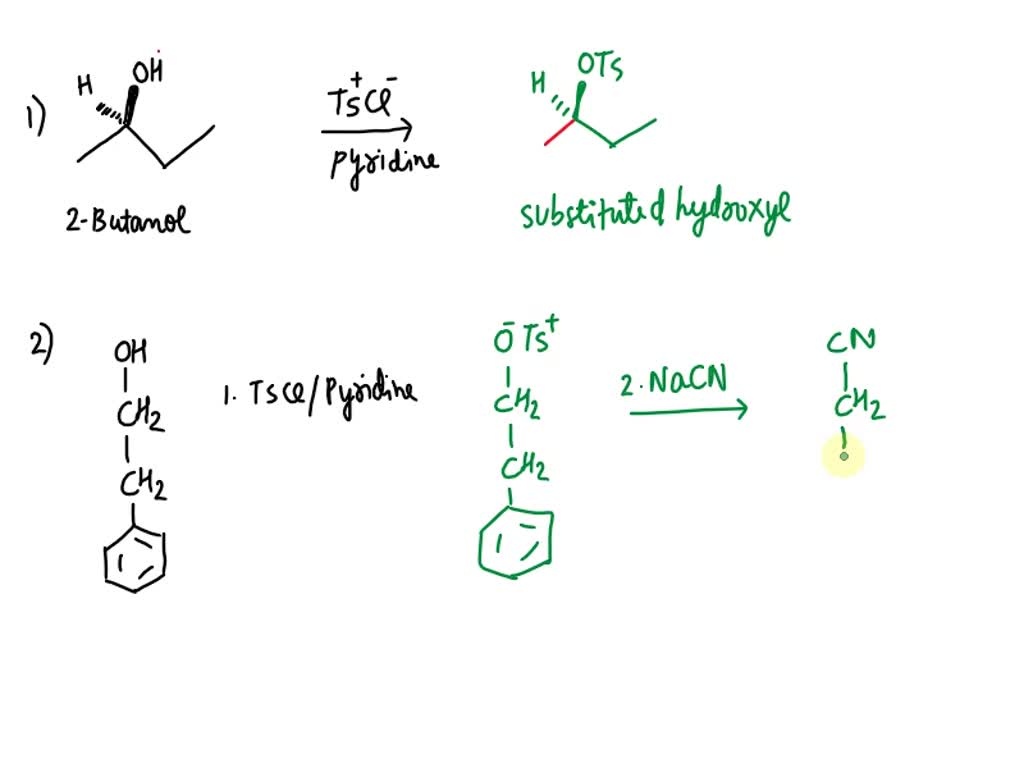 1)
H
OH
Ts⁺Cl⁻
pyridine
H
OTs
2-Butanol
substituted hydroxyl
2)
OH
CH2
CH2
1. TsCl/Pyridine
O⁻ Ts⁺
CH2
CH2
2. NaCN
CN
CH2